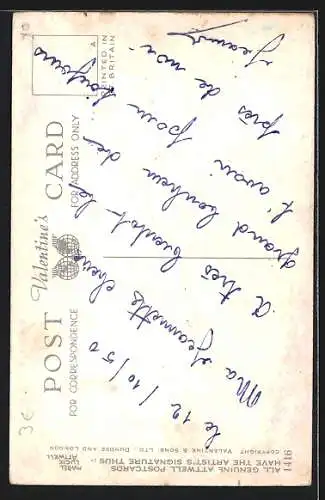 POST CARD
Valentine's
FOR CORRESPONDENCE
FOR ADDRESS ONLY
A
PRINTED IN
BRITAIN
le 12/10/50
Ma Jeannette chérie
A très bientôt le
grand bonheur de
t'avoir pour toujours
près de moi
Jean
3€
ALL GENUINE ATTWELL POSTCARDS
HAVE THE ARTIST'S SIGNATURE THUS :-
MABEL
LUCIE
ATTWELL
COPYRIGHT VALENTINE & SONS, LTD., DUNDEE AND LONDON
1416